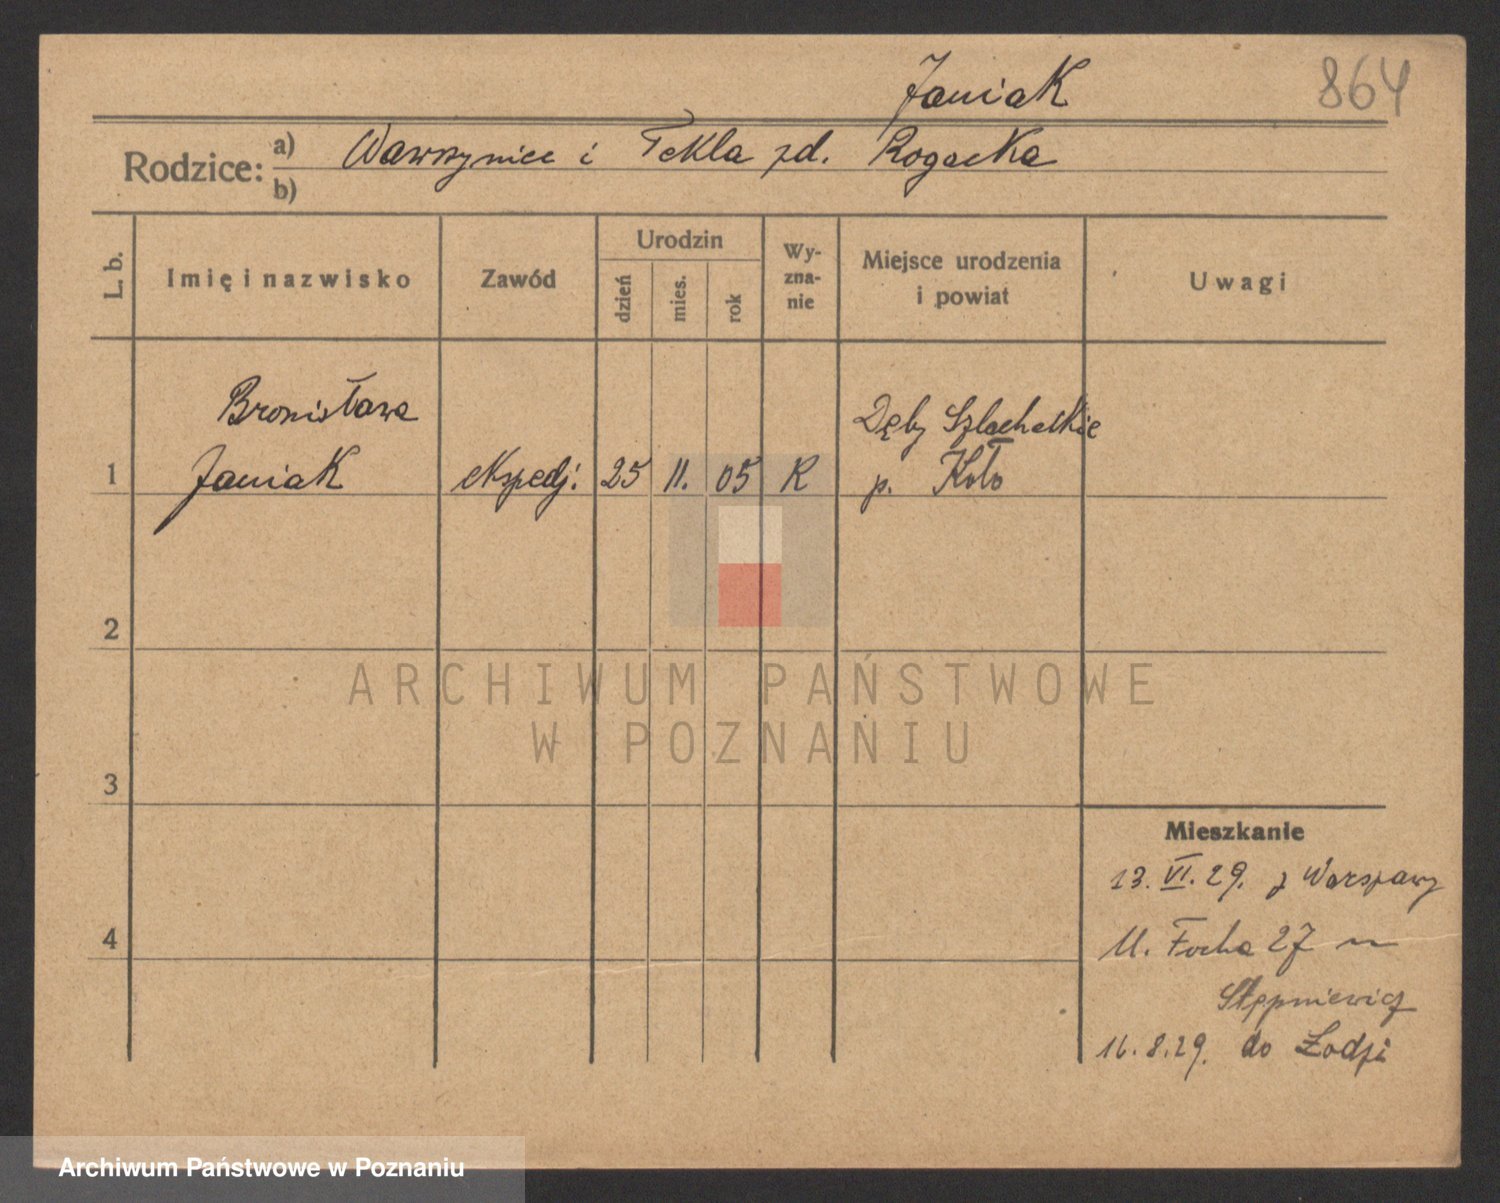 Janiak
864
Rodzice: a) Wawrzyniec i Tekla zd. Rogacka
b)
L. b.
Imię i nazwisko
Zawód
Urodzin
dzień
mies.
rok
Wy-
zna-
nie
Miejsce urodzenia
i powiat
Uwagi
Bronisława
Dęby Szlacheckie
1 Janiak ekspedj. 25 11. 05 R p. Koło
2
3
4
ARCHIWUM PAŃSTWOWE
W POZNANIU
Mieszkanie
13. VI. 29. z Warszawy
Ul. Focha 27 m
Stępniewicz
16. 8. 29. do Łodzi
Archiwum Państwowe w Poznaniu